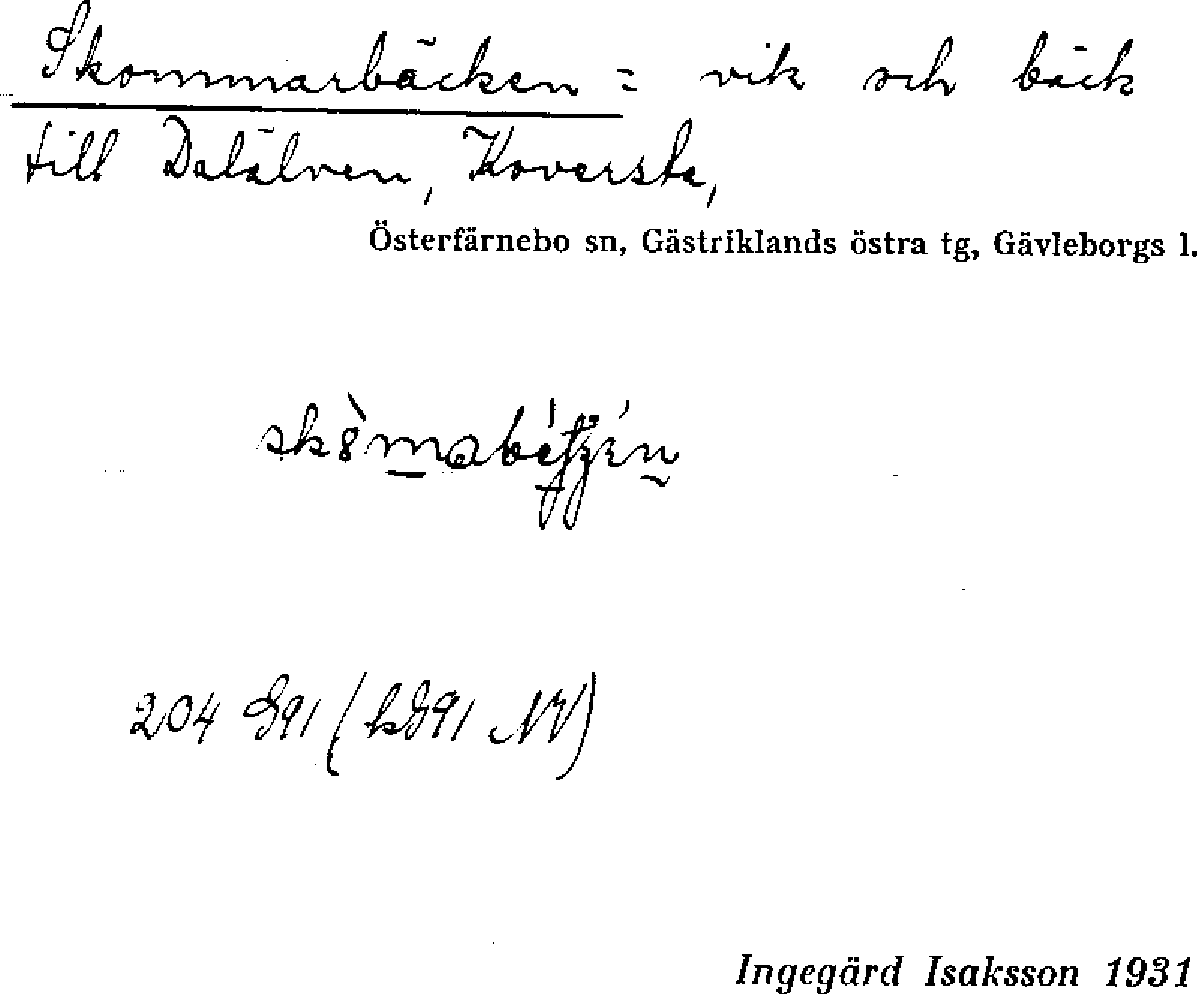 Skommarbäcken = vik och bäck
till Dalälven, Koversta,
Österfärnebo sn, Gästriklands östra tg, Gävleborgs l.
204 891 (k891 NV)
Ingegärd Isaksson 1931